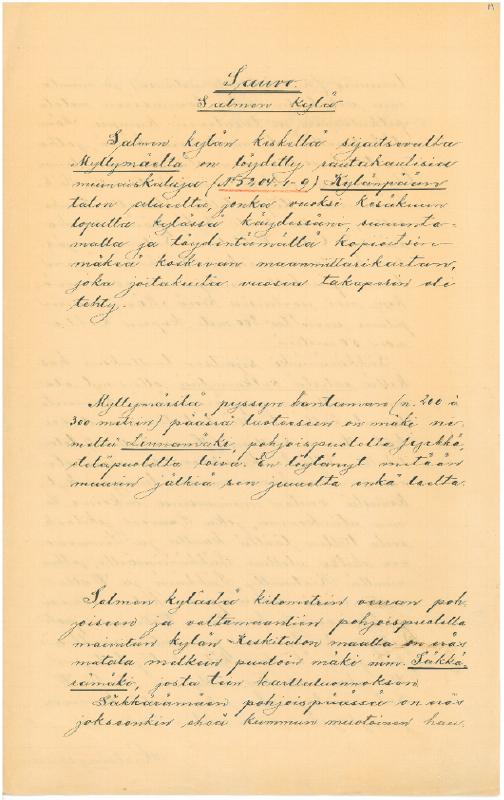 Sauvo.
Salmen kylä
Salmen kylän keskeltä sijaitsevalta
Myllymäeltä on löydetty rautakautisia
muinaiskaluja (№ 5204: 1-9) Kylänpään
talon alueelta, jonka vuoksi kesäkuun
lopulla kylässä käydessäni, suurenta-
malla ja täydentämällä kopioitsin
mäkeä koskevan maanmittarikartan,
joka joitakuita vuosia takaperin oli
tehty.
Myllymäestä pyssyn kantaman (n. 200 à
300 metrin) päässä luoteeseen on mäki ni-
meltä Linnamäki, pohjoispuolelta jyrkkä,
eteläpuolelta loiva. En löytänyt mitään
muurin jälkiä sen juurelta enkä laelta.
Salmen kylästä kilometrin verran poh-
joiseen ja valtamaantien pohjoispuolella
mainitun kylän Keskitalon maalla on eräs
matala melkein puuton mäki nim. Säkkä-
rämäki, josta tein karttaluonnoksen.
Säkkärämäen pohjoispäässä on eräs
joksoonkin eheä kummun muotoinen hau-